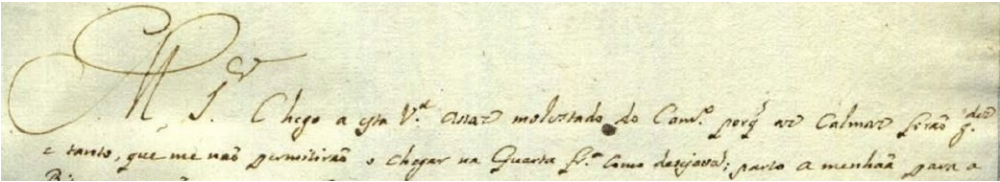 M. S.or Chego a esta V.a assaz molestado do Cam.o porq̃ as Calmas serão g.des
e tanto, que me não permitirão o chegar na Quarta fr.a como desejava; parto a menhãa para a